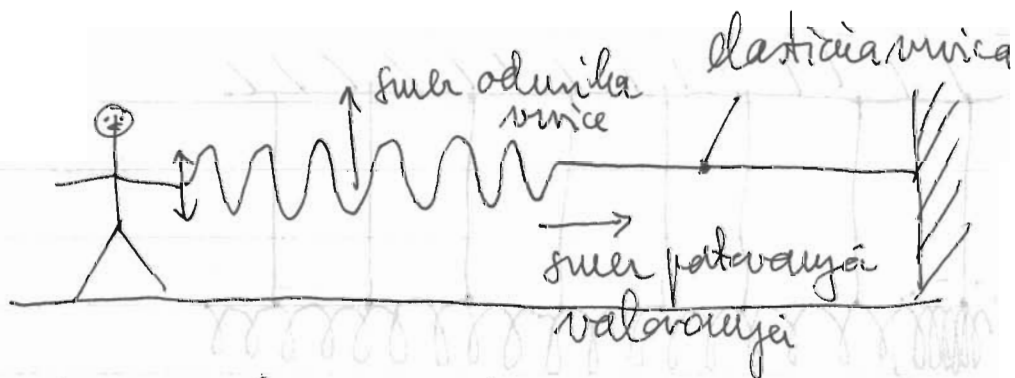 elastična vrvica
smer odmika
vrvice
smer potovanja
valovanja